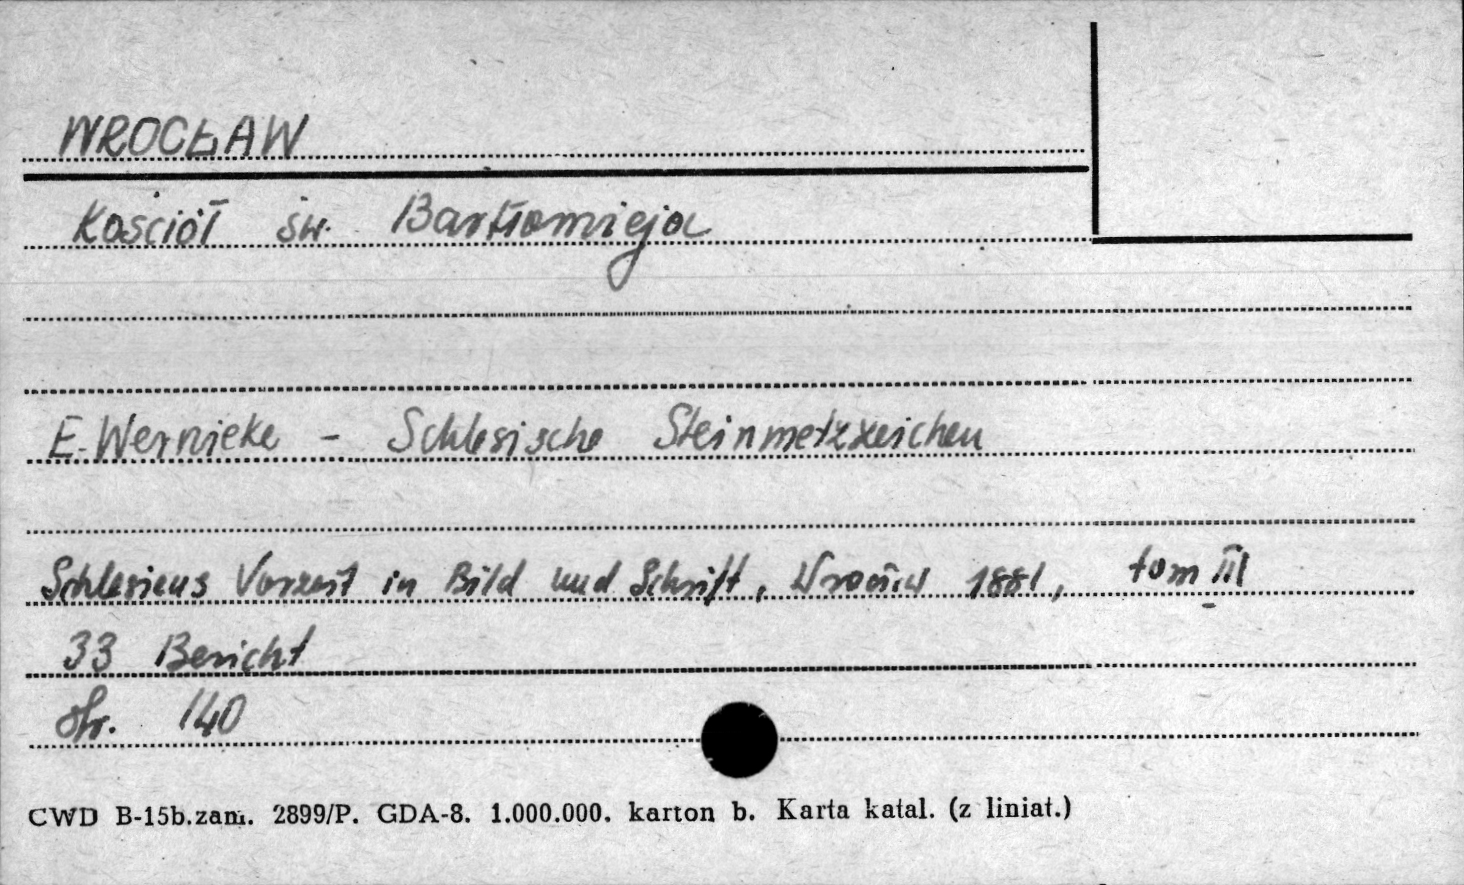 WROCŁAW
Kościół św. Bartłomieja
E. Wernicke - Schlesische Steinmetzzeichen
Schlesiens Vorzeit in Bild und Schrift, Wrocław 1881, tom III
33 Bericht
str. 140
CWD B-15b.zam. 2899/P. GDA-8. 1.000.000. karton b. Karta katal. (z liniat.)